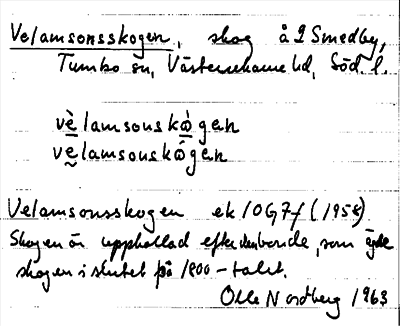 Velamsonsskogen, skog å 2 Smedby,
Tumbo sn, Västerrekarne hd, Söd. l.
vè̲lamsonskò̲gen
vḛlamsonskó̲gen
Velamsonsskogen ek 10G7f (1958)
Skogen är uppkallad efter denboende, som ägde
skogen i slutet på 1800-talet.
Olle Nordberg 1963